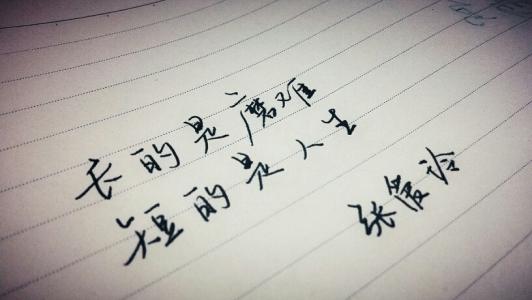 长的是磨难
短的是人生
张爱玲